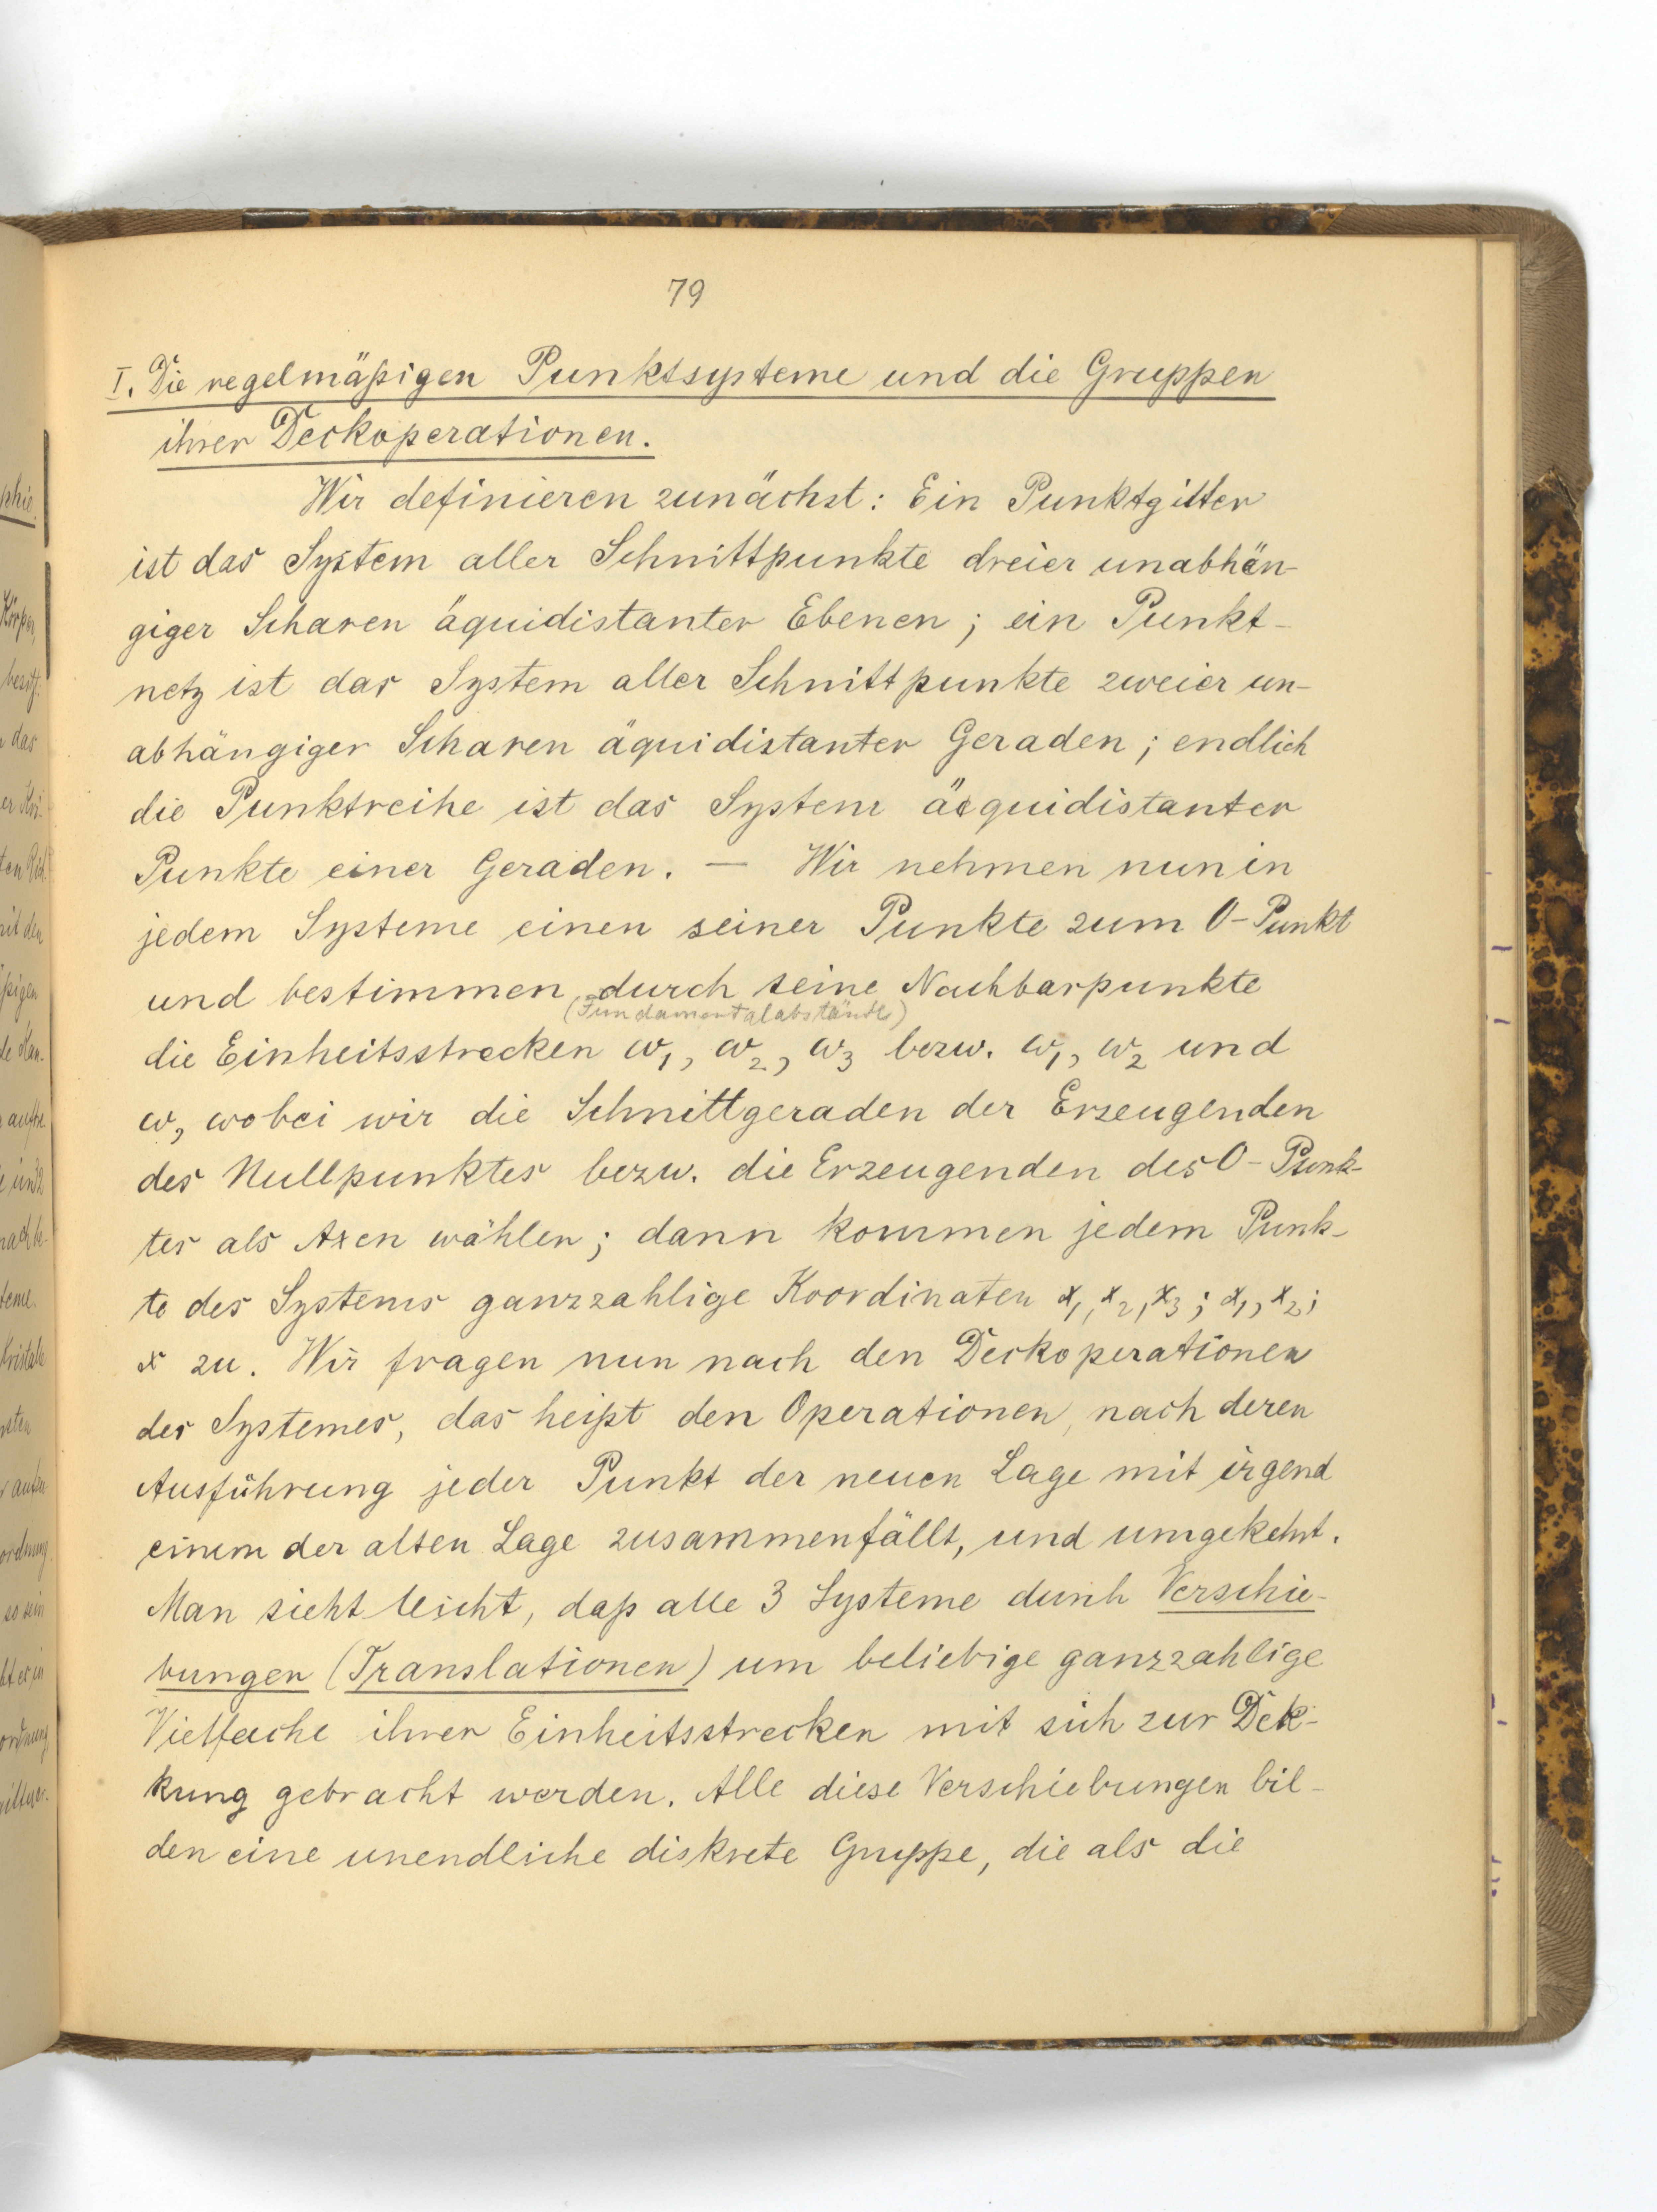 79
I. Die regelmäßigen Punktsysteme und die Gruppen
ihrer Deckoperationen.
Wir definieren zunächst: Ein Punktgitter
ist das System aller Schnittpunkte dreier unabhän-
giger Scharen äquidistanter Ebenen; ein Punkt-
netz ist das System aller Schnittpunkte zweier un-
abhängiger Scharen äquidistanter Geraden; endlich
die Punktreihe ist das System äquidistanter
Punkte einer Geraden. — Wir nehmen nun in
jedem Systeme einen seiner Punkte zum O-Punkt
und bestimmen, durch seine Nachbarpunkte
(Fundamentalabstände)
die Einheitsstrecken ω₁, ω₂, ω₃ bezw. ω₁, ω₂ und
ω, wobei wir die Schnittgeraden der Erzeugenden
des Nullpunktes bezw. die Erzeugenden des O-Punk-
tes als Axen wählen; dann kommen jedem Punk-
te des Systems ganzzahlige Koordinaten x₁, x₂, x₃; x₁, x₂;
x zu. Wir fragen nun nach den Deckoperationen
des Systemes, das heißt den Operationen, nach deren
Ausführung jeder Punkt der neuen Lage mit irgend
einem der alten Lage zusammenfällt, und umgekehrt.
Man sieht leicht, daß alle 3 Systeme durch Verschie-
bungen (Translationen) um beliebige ganzzahlige
Vielfache ihrer Einheitsstrecken mit sich zur Dek-
kung gebracht werden. Alle diese Verschiebungen bil-
den eine unendliche diskrete Gruppe, die als die